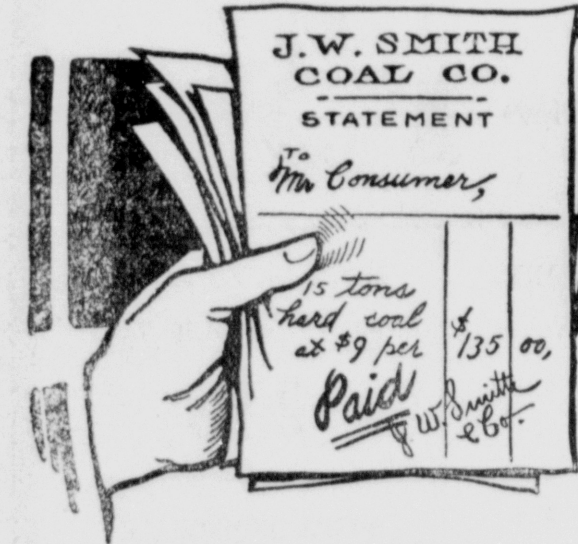 J.W. SMITH
COAL CO.
STATEMENT
To
Mr Consumer,
15 tons
hard coal
at $9 per
$135 00,
Paid
J. W. Smith
& Co.